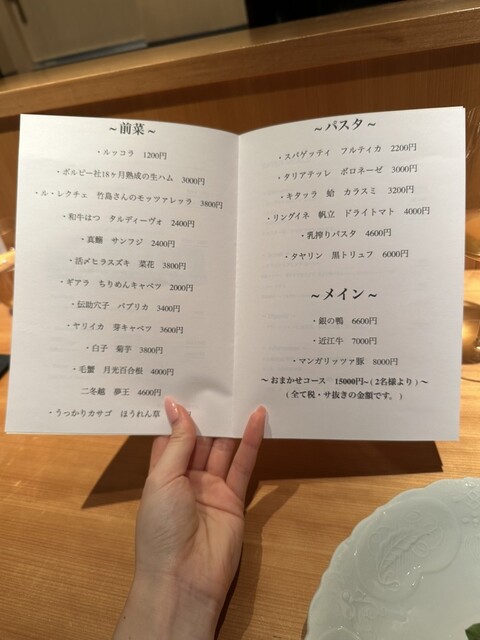 ～前菜～
・ルッコラ 1200円
・ボルピー社18ヶ月熟成の生ハム 3000円
・ル・レクチェ 竹島さんのモッツァレッラ 3800円
・和牛はつ タルディーヴォ 2400円
・真鯛 サンフジ 2400円
・活〆ヒラスズキ 菜花 3800円
・ギアラ ちりめんキャベツ 2000円
・伝助穴子 パプリカ 3400円
・ヤリイカ 芽キャベツ 3600円
・白子 菊芋 3800円
・毛蟹 月光百合根 4000円
二冬越 夢王 4600円
・うっかりカサゴ ほうれん草 円
～パスタ～
・スパゲッティ フルティカ 2200円
・タリアテッレ ボロネーゼ 3000円
・キタッラ 蛤 カラスミ 3200円
・リングイネ 帆立 ドライトマト 4000円
・乳搾りパスタ 4600円
・タヤリン 黒トリュフ 6000円
～メイン～
・銀の鴨 6600円
・近江牛 7000円
・マンガリッツァ豚 8000円
～おまかせコース 15000円~(2名様より)～
(全て税・サ抜きの金額です。)